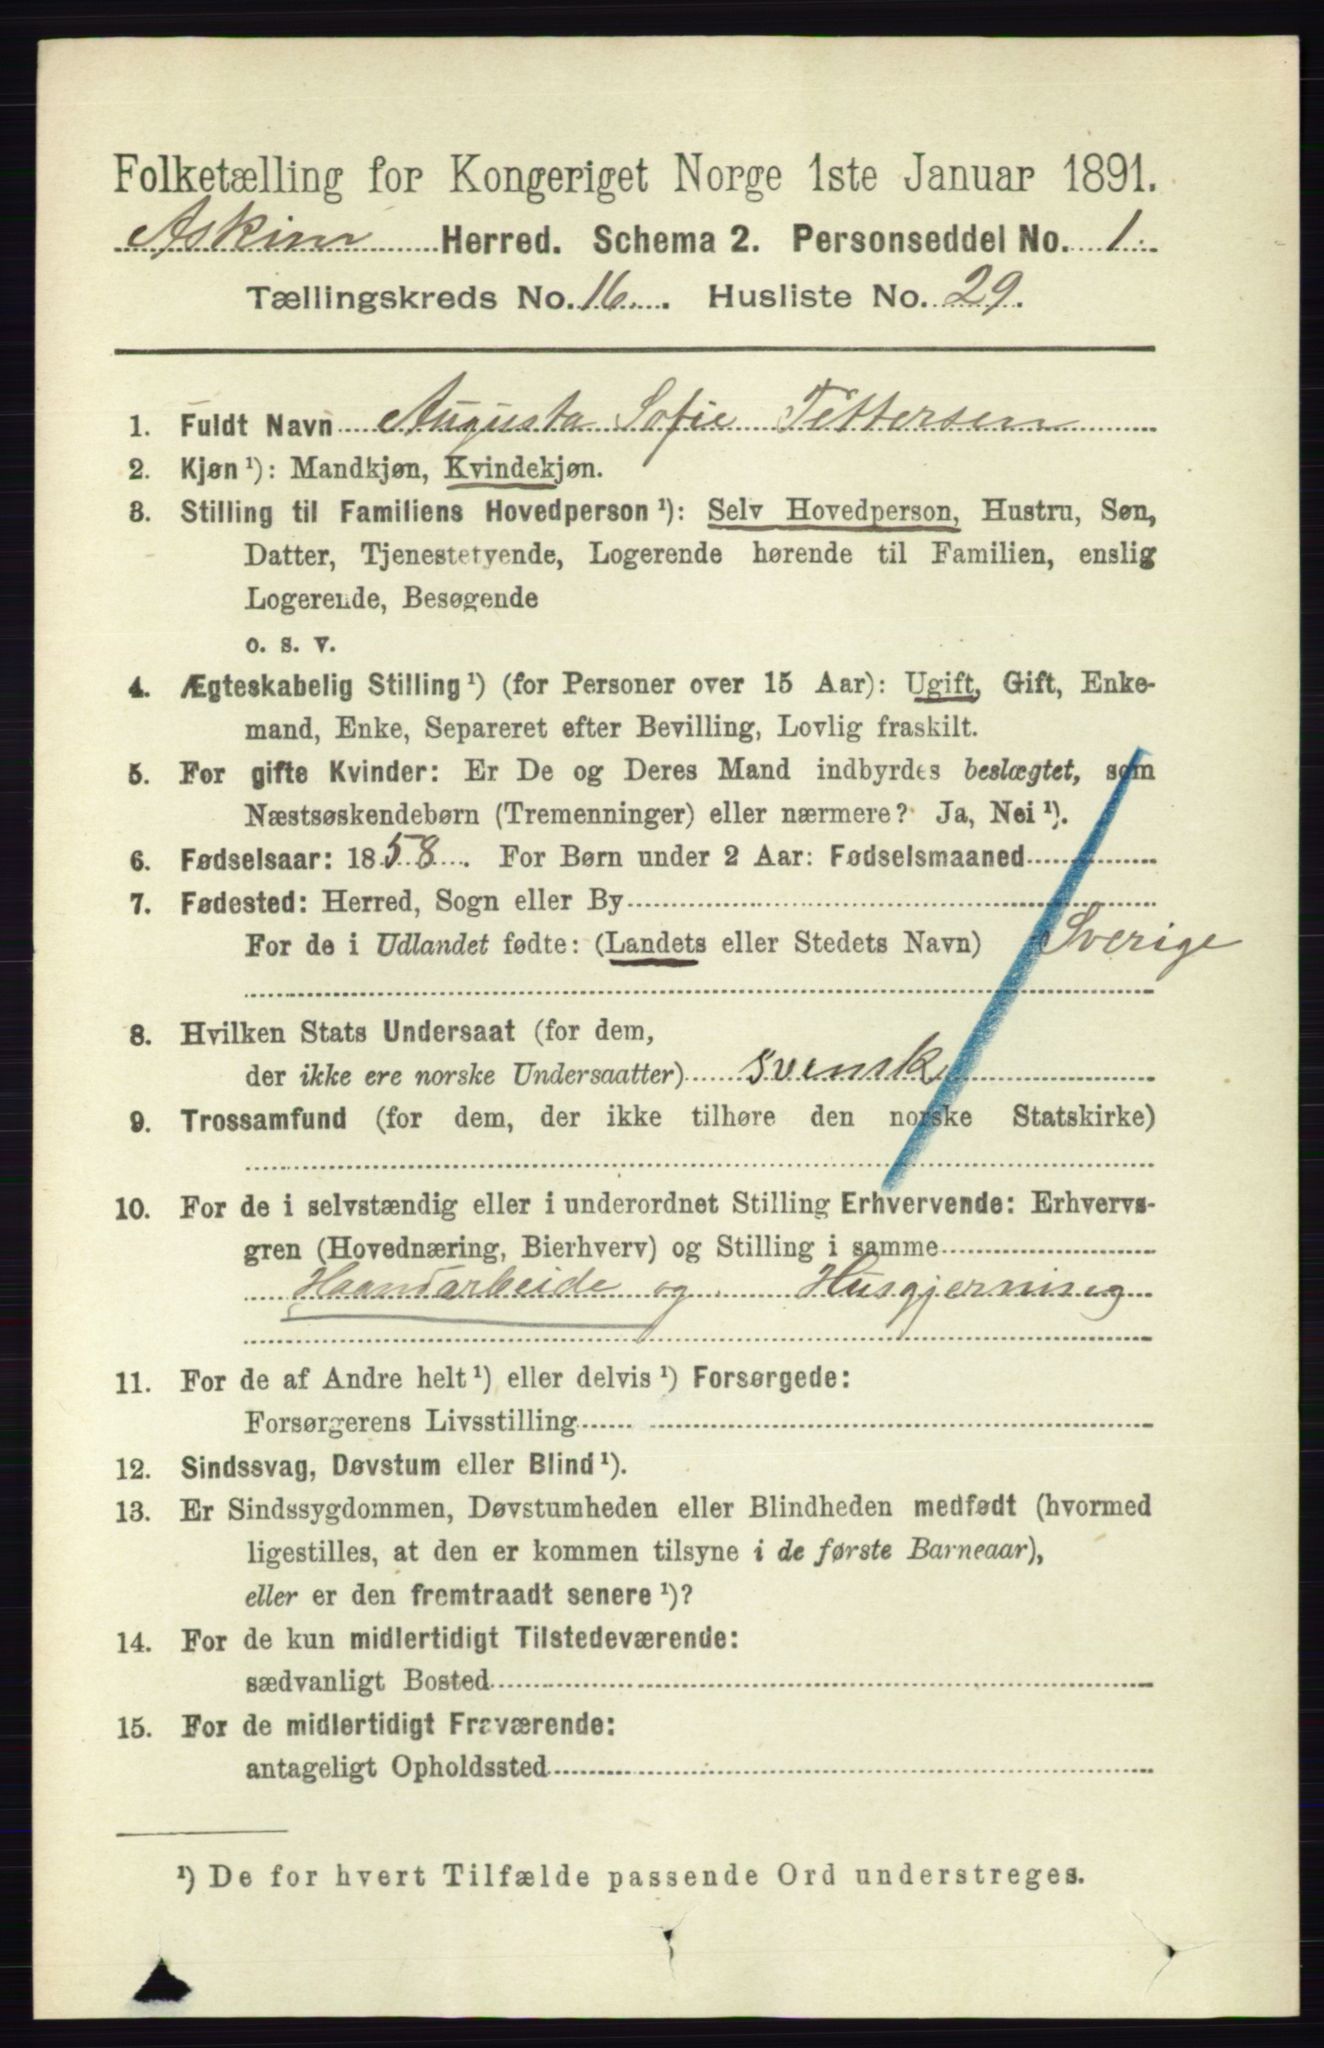 Folketælling for Kongeriget Norge 1ste Januar 1891.
Askim Herred. Schema 2. Personseddel No. 1.
Tællingskreds No. 16. Husliste No. 29.
1. Fuldt Navn Augusta Sofie Tittersen
2. Kjøn ¹): Mandkjøn, Kvindekjøn.
3. Stilling til Familiens Hovedperson ¹): Selv Hovedperson, Hustru, Søn,
Datter, Tjenestetyende, Logerende hørende til Familien, enslig
Logerende, Besøgende
o. s. v.
4. Ægteskabelig Stilling ¹) (for Personer over 15 Aar): Ugift, Gift, Enke-
mand, Enke, Separeret efter Bevilling, Lovlig fraskilt.
5. For gifte Kvinder: Er De og Deres Mand indbyrdes beslægtet, som
Næstsøskendebørn (Tremenninger) eller nærmere? Ja, Nei ¹).
6. Fødselsaar: 1858. For Børn under 2 Aar: Fødselsmaaned
7. Fødested: Herred, Sogn eller By
For de i Udlandet fødte: (Landets eller Stedets Navn) Sverige
8. Hvilken Stats Undersaat (for dem,
der ikke ere norske Undersaatter) svensk
9. Trossamfund (for dem, der ikke tilhøre den norske Statskirke)
10. For de i selvstændig eller i underordnet Stilling Erhvervende: Erhvervs-
gren (Hovednæring, Bierhverv) og Stilling i samme
Haandarbeide og Husgjerning
11. For de af Andre helt ¹) eller delvis ¹) Forsørgede:
Forsørgerens Livsstilling
12. Sindssvag, Døvstum eller Blind ¹).
13. Er Sindssygdommen, Døvstumheden eller Blindheden medfødt (hvormed
ligestilles, at den er kommen tilsyne i de første Barneaar),
eller er den fremtraadt senere ¹)?
14. For de kun midlertidigt Tilstedeværende:
sædvanligt Bosted
15. For de midlertidigt Fraværende:
antageligt Opholdssted
¹) De for hvert Tilfælde passende Ord understreges.